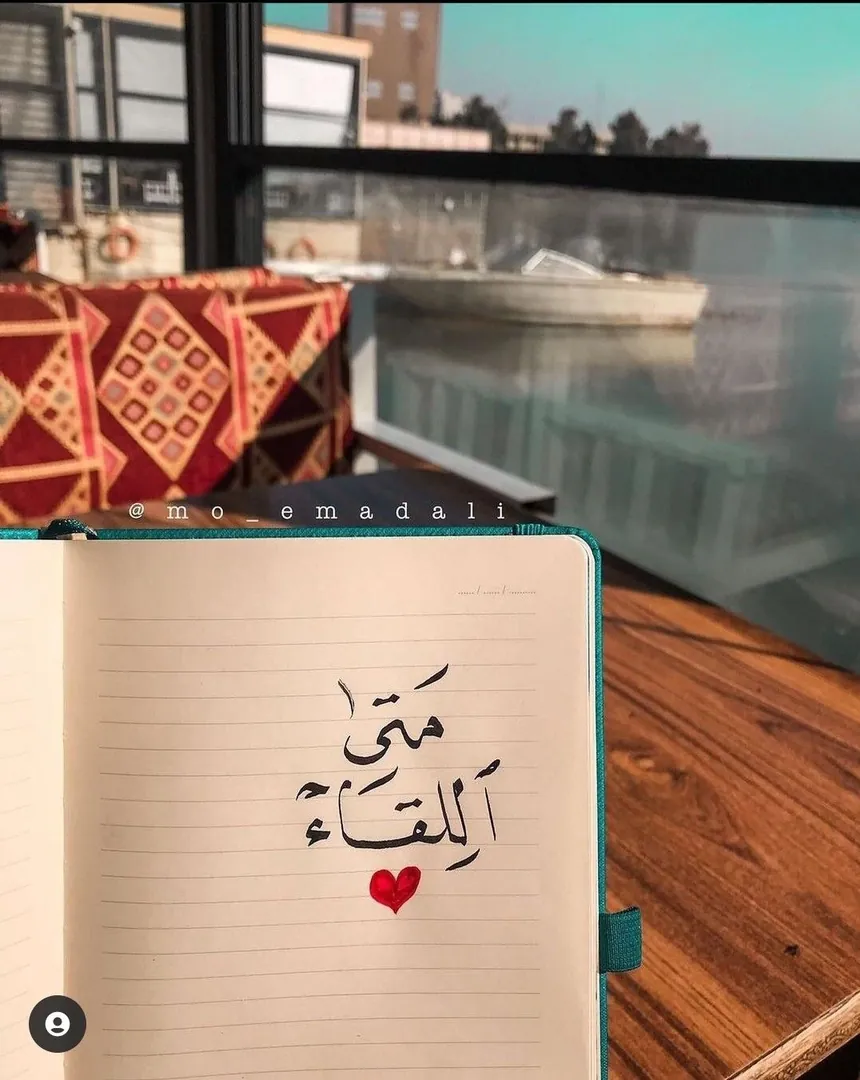 @mo_emadali
..... / ..... / .........
مَتىٰ
ٱللِقَاءٓ